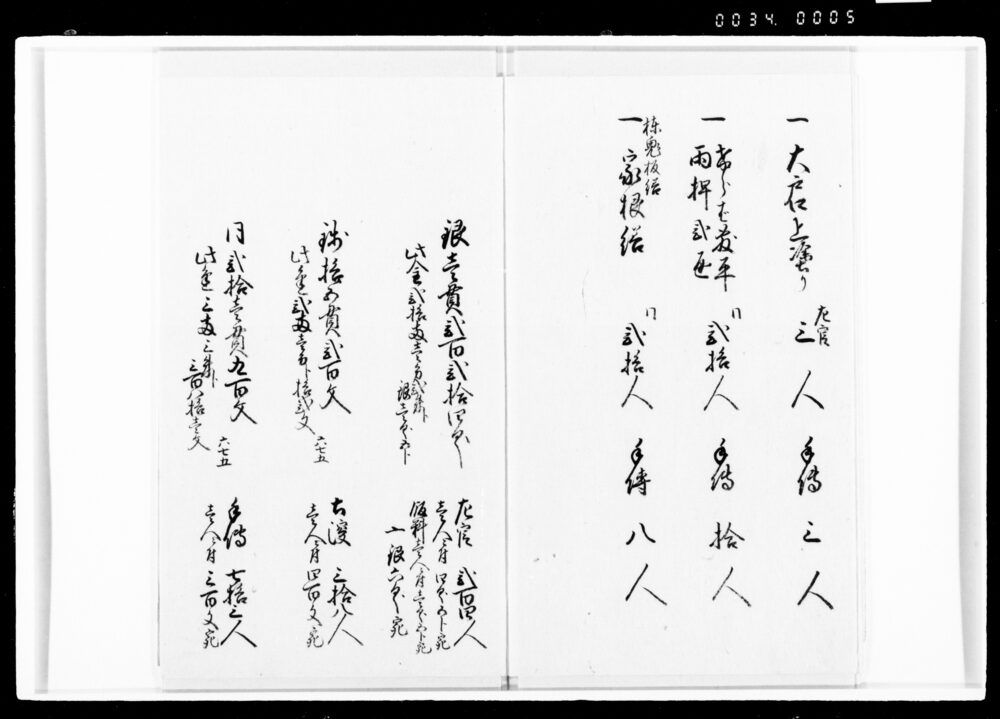 0034. 0005
一 大戸上塗り 左官 三人 手傳 三人
一
雨押弐通 〃 弐拾人 手傳 拾人
棟鬼板繕
一 家根繕 〃 弐拾人 手傳 八人
銀壱貫弐百弐拾四匁 左官 弐百四人
此金弐拾両壱分弐朱 壱人ニ付四匁五分宛
銀壱匁五分 飯料壱人ニ付壱匁五分宛
〆銀六匁宛
銭拾五貫弐百文 三拾八人
此金弐両壱分ト拾弐文 六七五 壱人ニ付四百文宛
同弐拾壱貫九百文 手傳 七拾三人
此金三両三朱ト 六七五 壱人ニ付三百文宛
三百八拾壱文